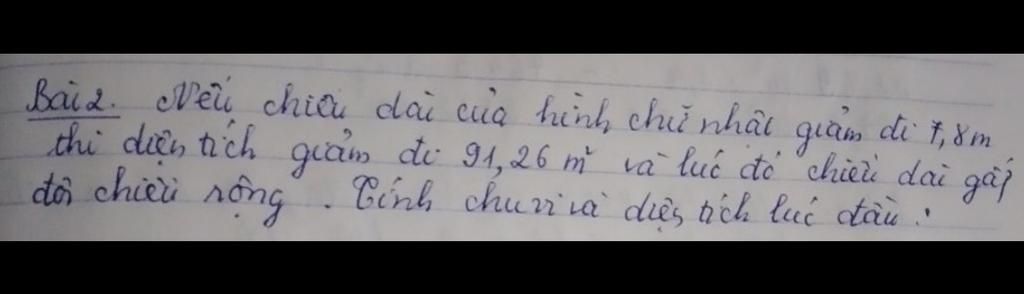 Bài 2. Nếu chiều dài của hình chữ nhật giảm đi 7,8m
thì diện tích giảm đi 91,26 m² và lúc đó chiều dài gấp
đôi chiều rộng. Tính chu vi và diện tích lúc đầu.